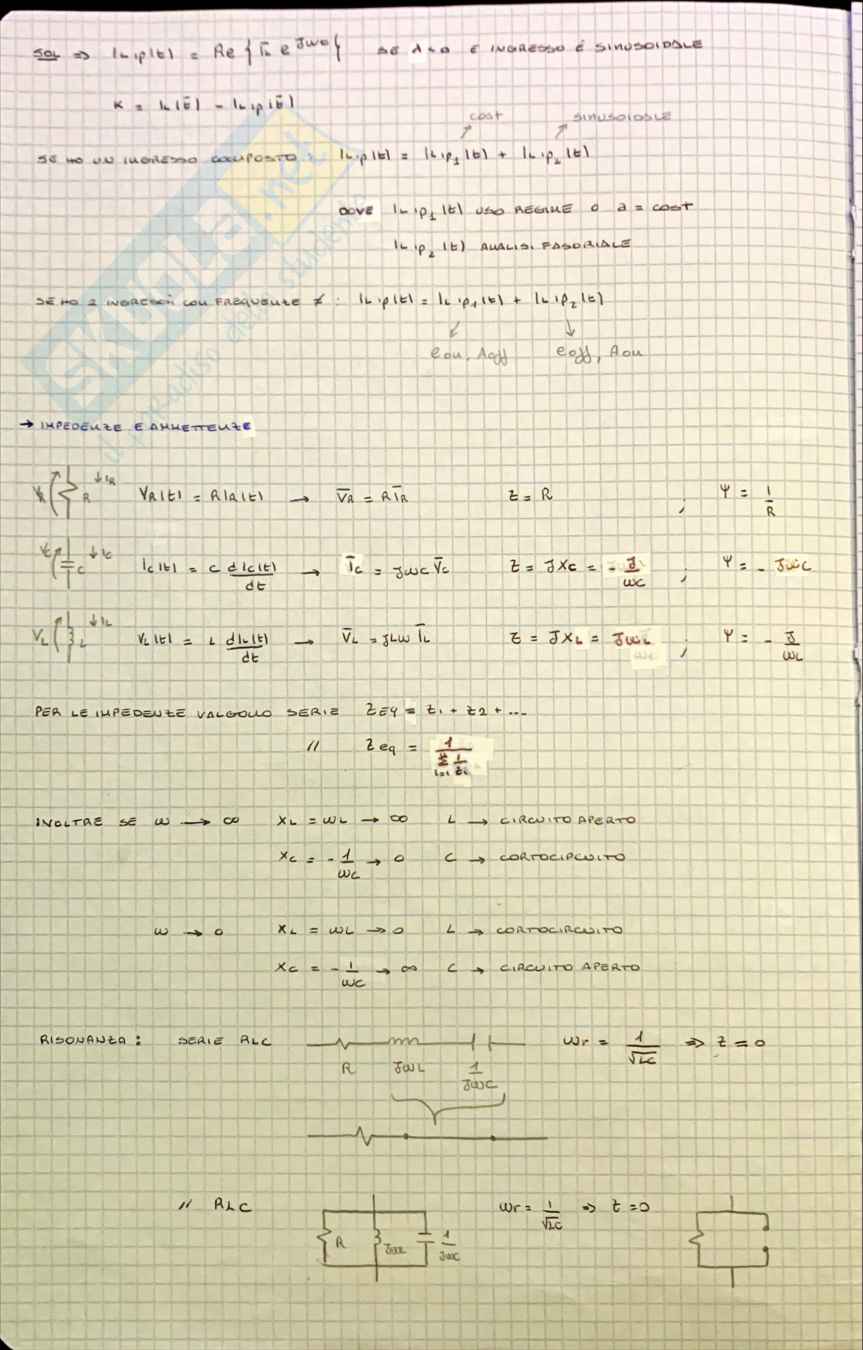 SOL ⇒ iLip(t) = Re { ĪL e^jωt } SE A=0 E INGRESSO È SINUSOIDALE
K = iL(t̄) - iLip(t̄)
cost SINUSOIDALE
SE HO UN INGRESSO COMPOSTO : iLip(t) = iLip1(t) + iLip2(t)
DOVE iLip1(t) USO REGIME 0 a = cost
iLip2(t) ANALISI FASORIALE
SE HO 2 INGRESSI CON FREQUENZE ≠ : iLip(t) = iLip1(t) + iLip2(t)
eon, Aoff eoff, Aon
→ IMPEDENZE E AMMETTENZE
VR R ↓iR VR(t) = R iR(t) → V̄R = R ĪR Z = R ; Y = 1/R
VC C ↓iC IC(t) = C dIC(t)/dt → ĪC = JωC V̄C Z = JXC = - J/ωC ; Y = - JωC
VL L ↓iL VL(t) = L diL(t)/dt → V̄L = JLω ĪL Z = JXL = JωL ; Y = - J/ωL
PER LE IMPEDENZE VALGONO SERIE ZEQ = Z1 + Z2 + ...
// Zeq = 1/Σ i=1 1/Zi
INOLTRE SE ω → ∞ XL = ωL → ∞ L → CIRCUITO APERTO
XC = - 1/ωC → 0 C → CORTOCIRCUITO
ω → 0 XL = ωL → 0 L → CORTOCIRCUITO
XC = - 1/ωC → ∞ C → CIRCUITO APERTO
RISONANZA : SERIE RLC ωr = 1/√LC ⇒ Z = 0
R JωL 1/JωC
// RLC ωr = 1/√LC ⇒ Z = 0
R JωL 1/JωC
SKUOLA.net
il paradiso dello studente